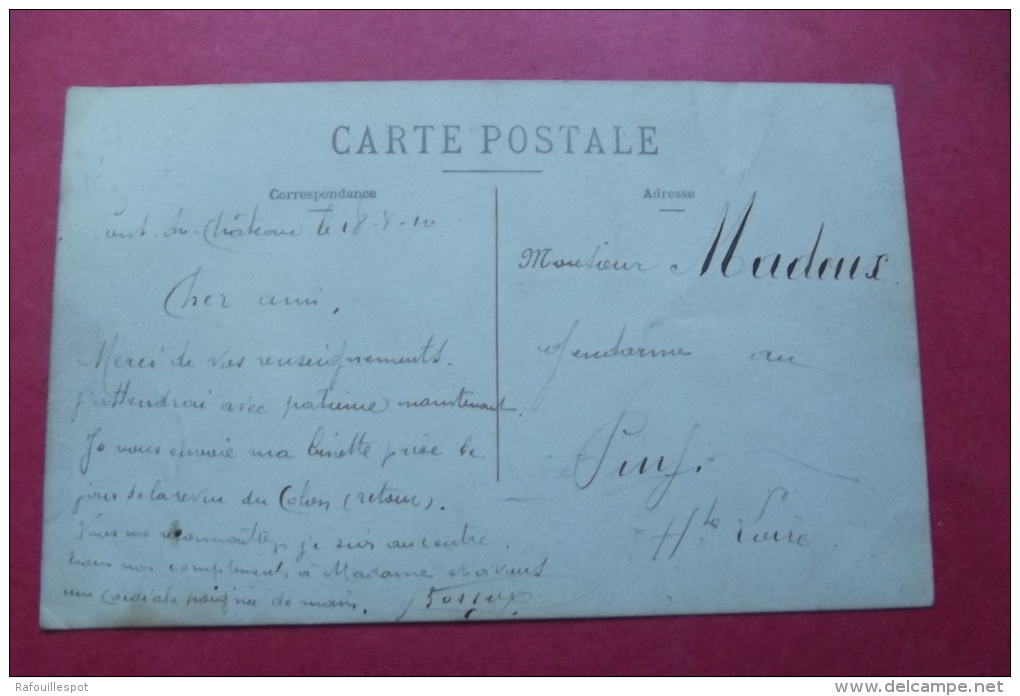 CARTE POSTALE
Correspondance
Pont-du-Château le 18-8-10
Cher ami,
Merci de vos renseignements.
j'attendrai avec patience maintenant.
Je vous envoie ma binette prise le
jour de la revue du Colon (retour).
Vous me reconnaîtrez je suis au centre.
nos compliments à Madame et à vous
une cordiale poignée de main.
Adresse
Monsieur Madoux
Gendarme au
Puy.
Hte Loire
Rafouillespot
www.delcampe.net